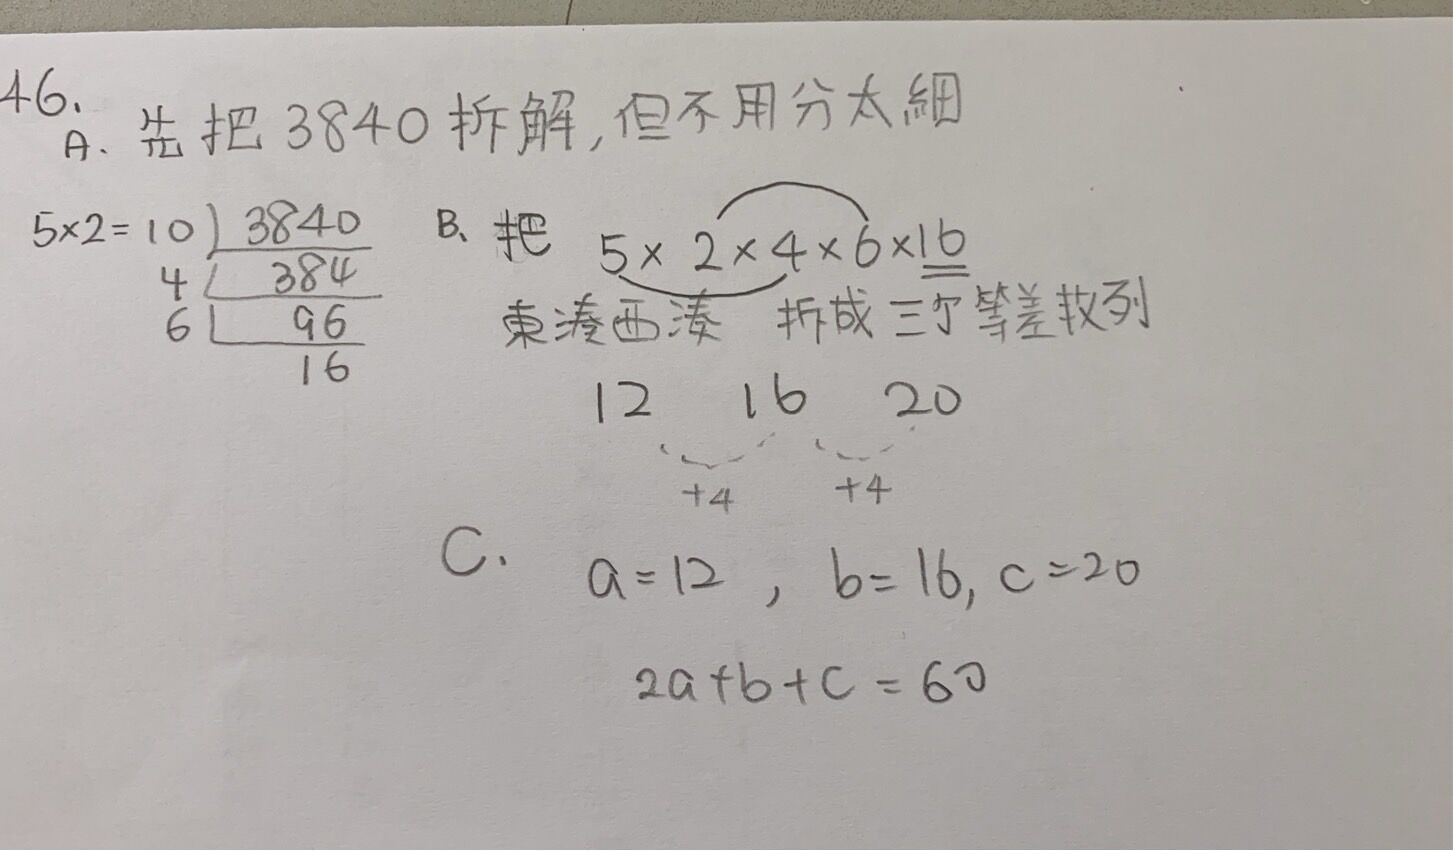 46.
A. 先把3840拆解,但不用分太細
5×2=10)3840
4 384
6 96
16
B、把 5×2×4×6×16
東湊西湊 拆成三个等差数列
12 16 20
+4 +4
C. a=12, b=16, c=20
2a+b+c=60